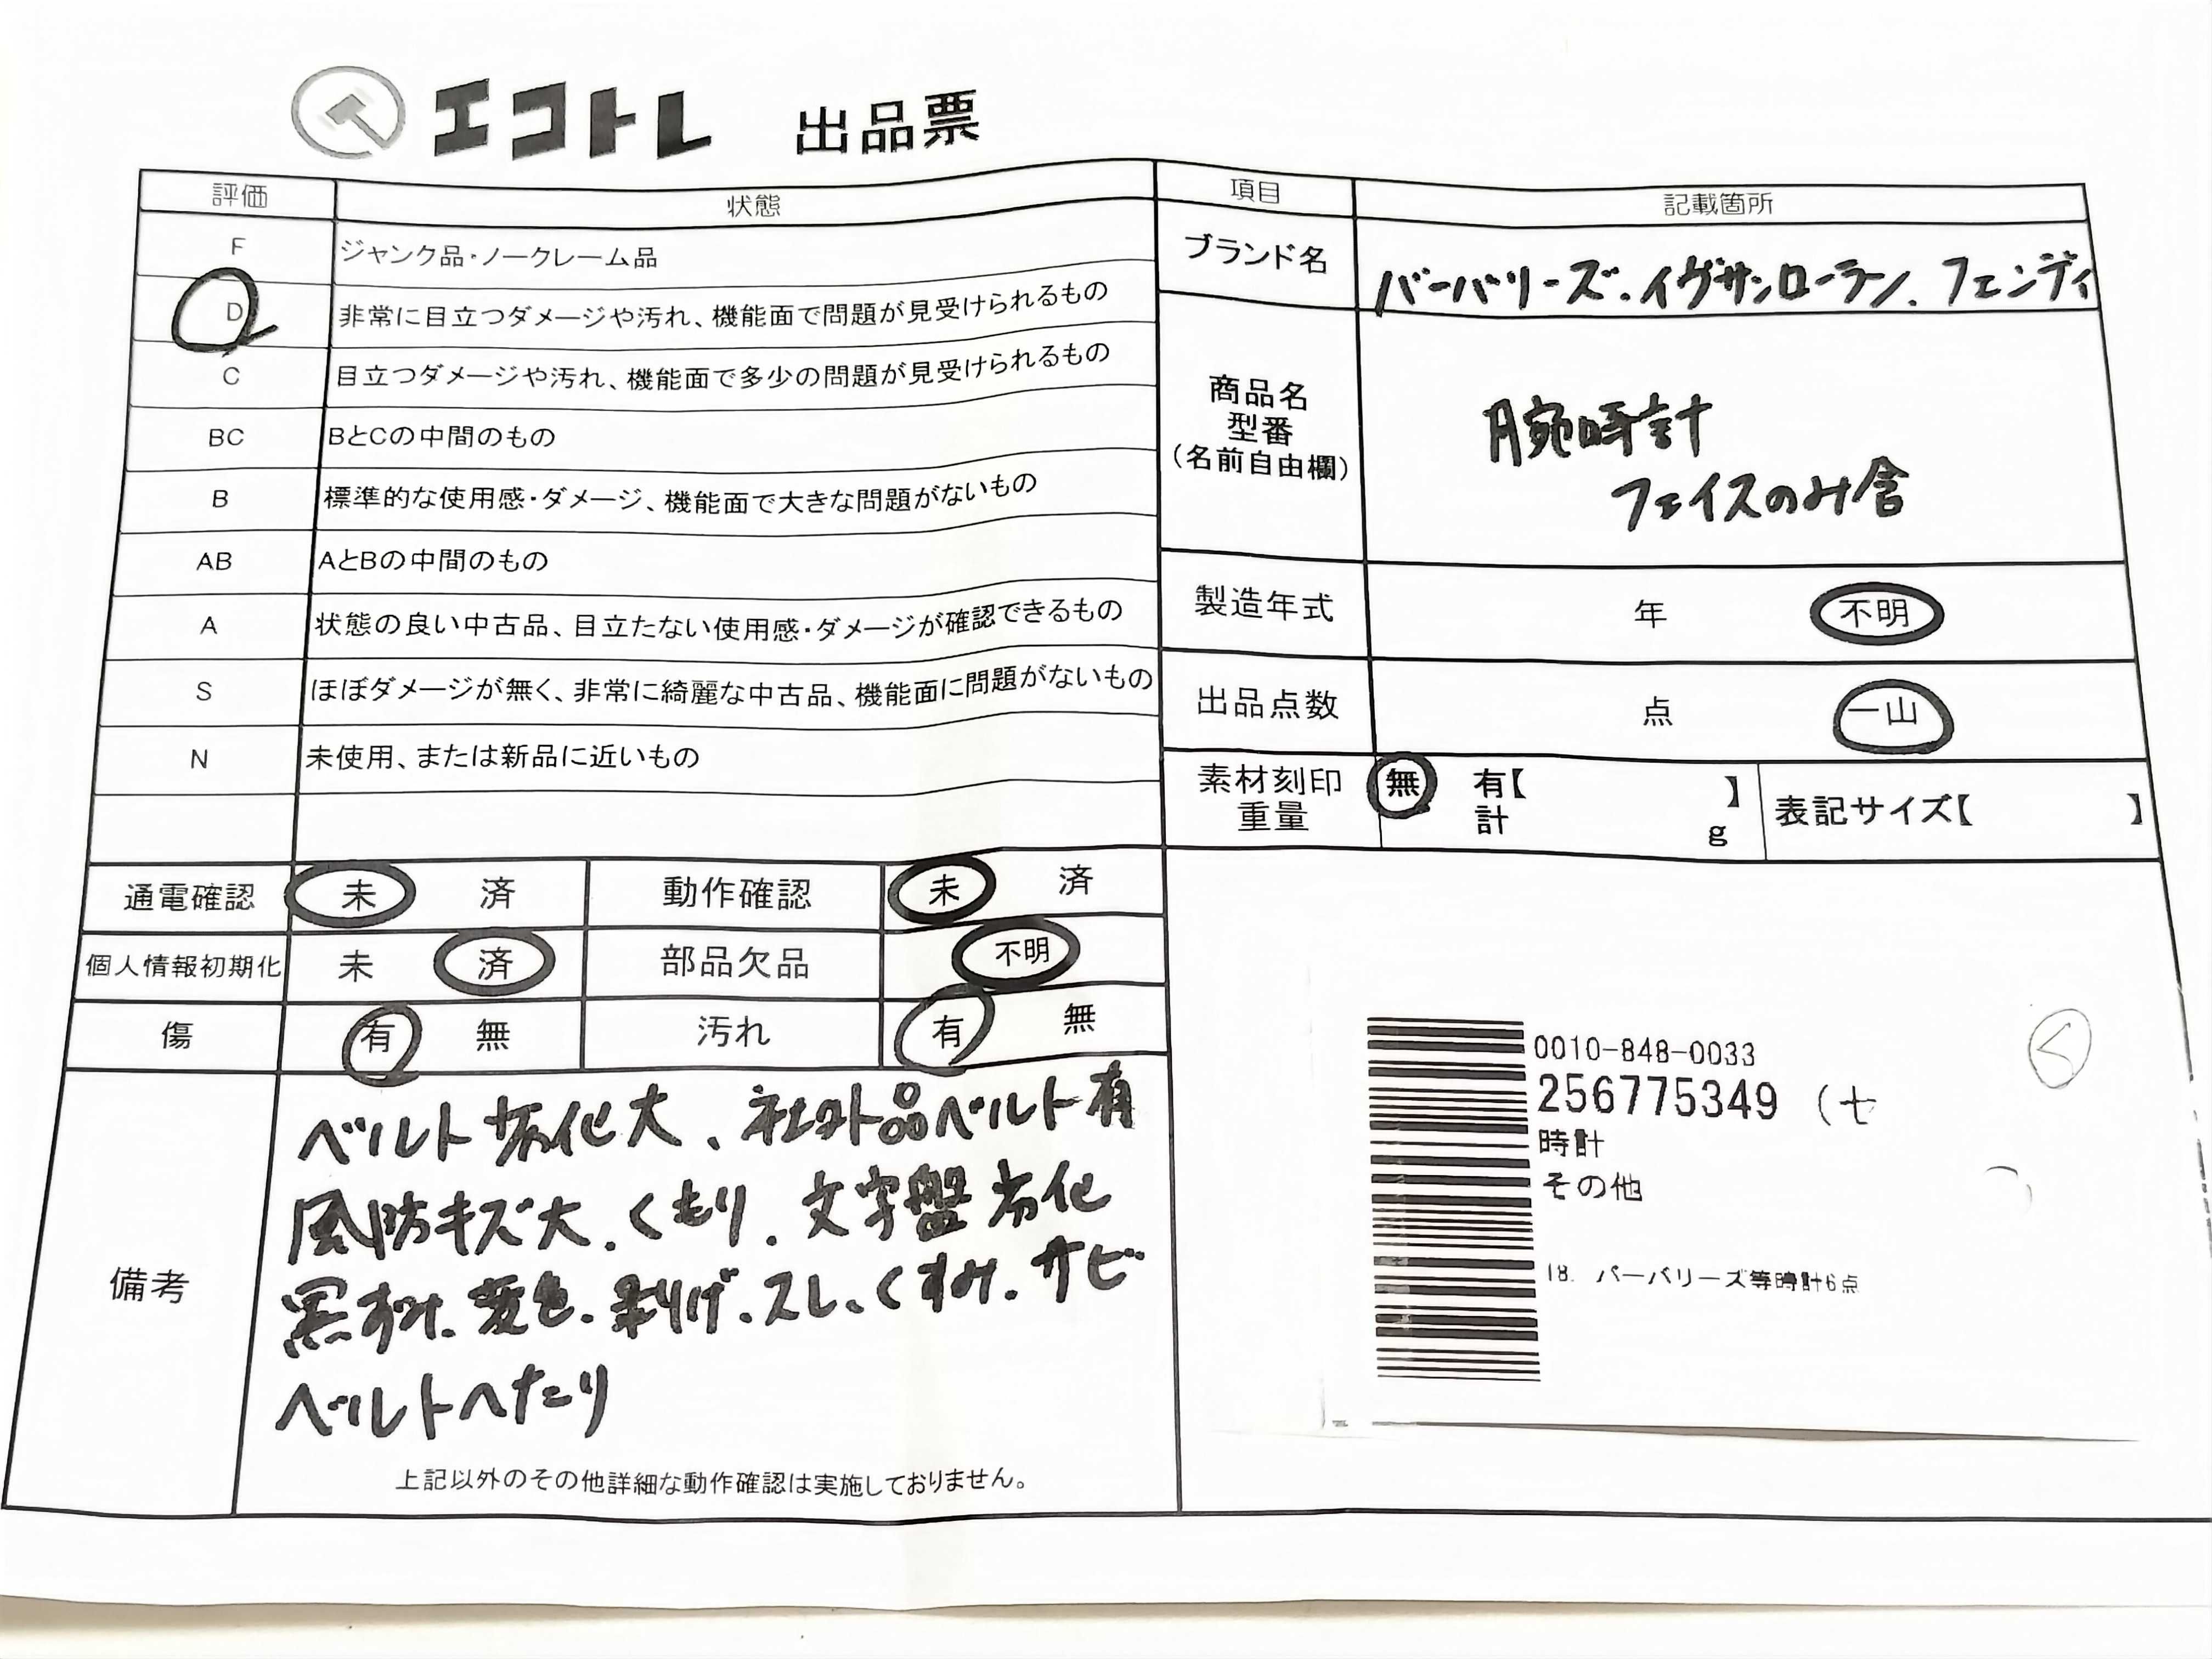 エコトレ 出品票
評価 状態
F ジャンク品・ノークレーム品
D 非常に目立つダメージや汚れ、機能面で問題が見受けられるもの
C 目立つダメージや汚れ、機能面で多少の問題が見受けられるもの
BC BとCの中間のもの
B 標準的な使用感・ダメージ、機能面で大きな問題がないもの
AB AとBの中間のもの
A 状態の良い中古品、目立たない使用感・ダメージが確認できるもの
S ほぼダメージが無く、非常に綺麗な中古品、機能面に問題がないもの
N 未使用、または新品に近いもの
通電確認 未 済 動作確認 未 済
個人情報初期化 未 済 部品欠品 不明
傷 有 無 汚れ 有 無
備考
ベルト劣化大、社外品ベルト有
風防キズ大.くもり.文字盤劣化
黒ずみ.変色.剥げ.スレ.くすみ.サビ
ベルトへたり
上記以外のその他詳細な動作確認は実施しておりません。
項目 記載箇所
ブランド名 バーバリーズ.イヴサンローラン.フェンディ
商品名
型番
(名前自由欄)
腕時計
フェイスのみ含
製造年式 年 不明
出品点数 点 一山
素材刻印 無 有【 】
重量 計 g
表記サイズ【 】
0010-848-0033
256775349 (七
時計
その他
18. バーバリーズ等時計6点